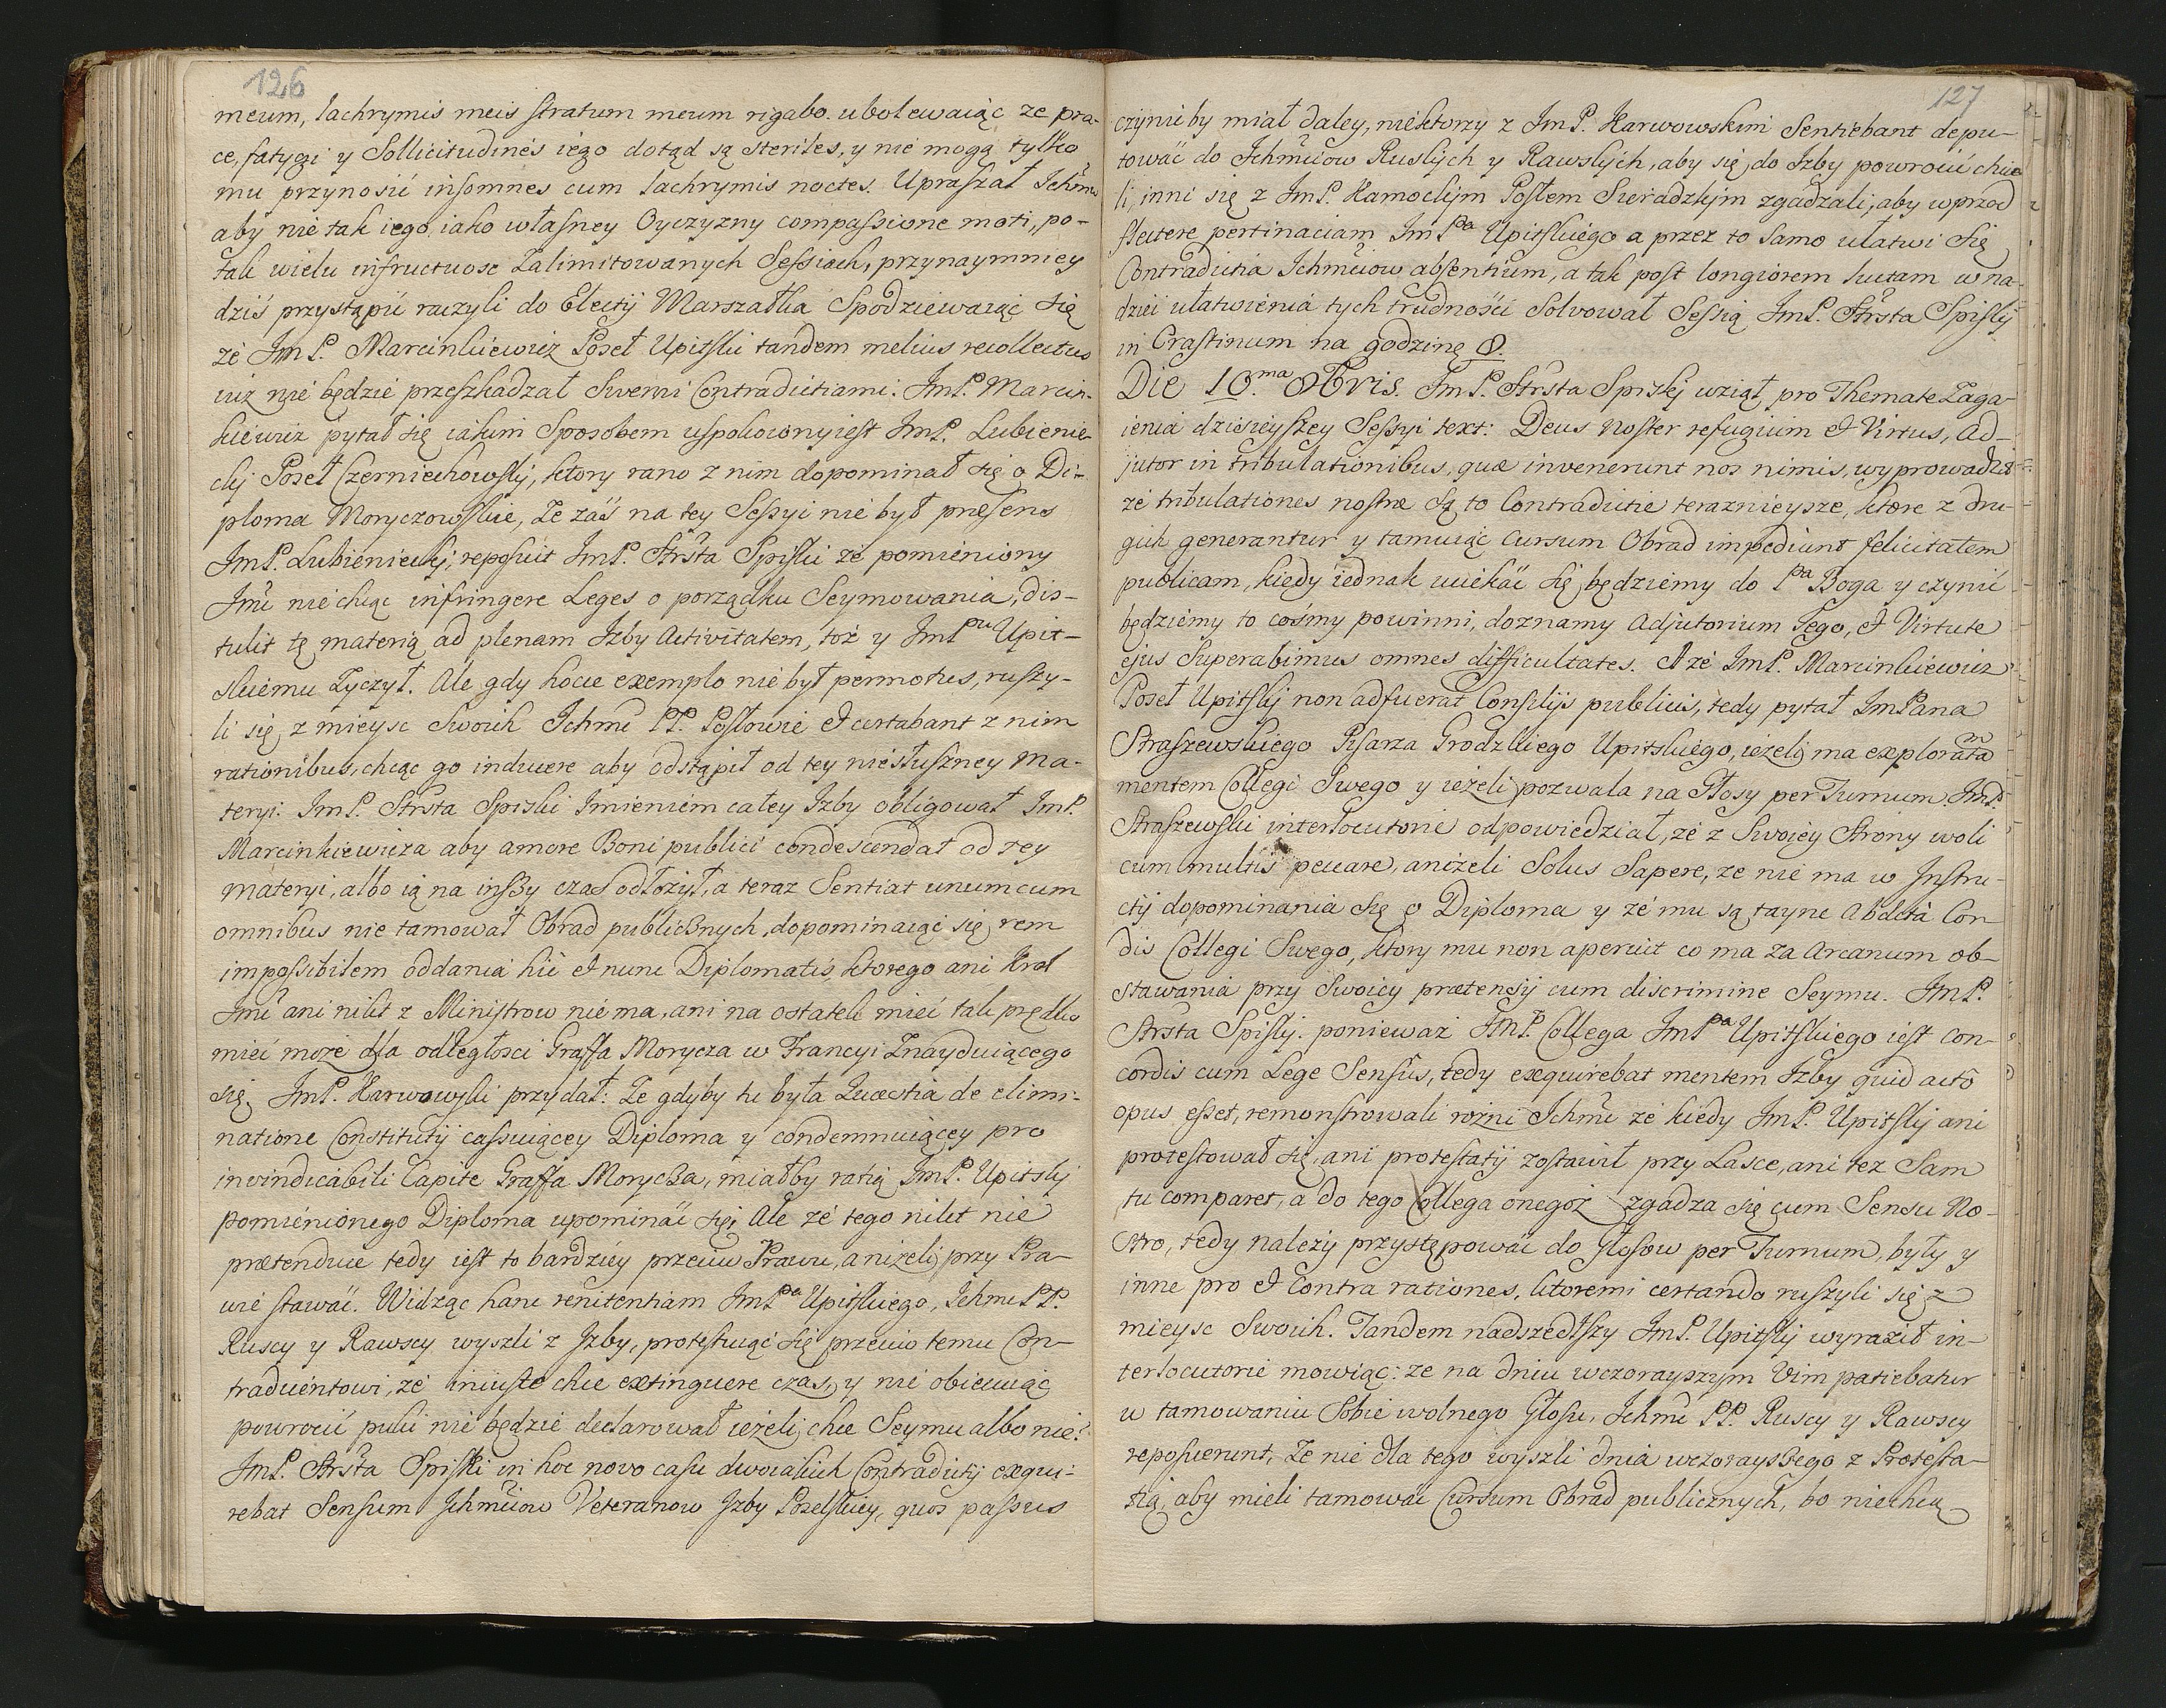 126
meum, lachrymis meis stratum meum rigabo. ubolewaiąc ze pra-
ce, fatygi y Sollicitudines iego dotąd są steriles, y nie mogą tylko
mu przynosić insomnes cum lachrymis noctes. Upraszał Ichmw
aby nie tak iego, iako własney Oyczyzny compassione moti, po-
tak wielu infructuose Zalimitowanych Sessiach, przynaymniey
dziś przystąpić raczyli do Electij Marszałka Spodziewaiąc się
że ImP. Marcinkiewicz Poseł Upitski tandem melius recollectus
iuż nie będzie przeszkadzał Swemi Contradictiami. ImP. Marcin-
kiewicz pytał się iakim Sposobem uspokoiony iest ImP. Lubienie-
cky Poseł Czerniechowsky, ktory rano z nim dopominał się o Di-
ploma Moryczowskie, Ze zaś na tey Sessyi nie był præsens
ImP. Lubieniecky, reposuit ImP. Strsta Spiski że pomieniony
Imć nie chcąc infringere Leges o porządku Seymowania, dis-
tulit tę materią ad plenam Izby Activitatem, toż y ImPnu Upit-
skiemu Zyczył. Ale gdy hocce exemplo nie był permotus, ruszy-
li się z mieysc Swoich Ichmć PP. Posłowie et certabant z nim
rationibus, chcąc go inducere aby odstąpił od tey niesłuszney ma-
teryi. ImP. Strsta Spiski Imieniem całey Izby obligował ImP.
Marcinkiewicza aby amore Boni publici condescendat od tey
materyi, albo ią na inszy czas odłożył, a teraz Sentiat unum cum
omnibus nie tamował Obrad publicznych, dopominaiąc się rem
impossibilem oddania hic et nunc Diplomatis, ktorego ani Krol
Imć ani nikt z Ministrow nie ma, ani na ostatek mieć tak prędko
mieć może dla odległości Graffa Morycza w Francyi Znayduiącego
się. ImP. Karwowski przydał: Ze gdyby tu była Quæstia de elimi-
natione Constitutij cassuiącey Diploma y condemnuiącey pro
invindicabili Capite Graffa Morycza, miałby ratią ImP. Upitsky
pomienionego Diploma upominać się; Ale że tego nikt nie
prætenduie tedy iest to bardziey przeciw Prawu, aniżeli przy Pra-
wie stawać. Widząc hanc renitentiam ImPa Upitskiego, Ichmć PP.
Ruscy y Rawscy wyszli z Izby, protestuiąc się przeciw temu Con-
tradicentowi, że iniuste chce extinguere czas, y nie obiecuiąc
powrocić puki nie będzie declarował ieżeli chce Seymu albo nie?
ImP. Strsta Spiski in hoc novo casu dwoiakich Contradictij exqui-
rebat Sensum Ichmćiow Veteranow Izby Poselskiey, quos passus
127
czynić by miał daley, niektorzy z ImP. Karwowskim Sentiebant depu-
tować do Ichmćiow Ruskych y Rawskych, aby się do Izby powrocić chcie
li, inni się z ImP. Kamockym Posłem Sieradzkym zgadzali, aby wprzod
flectere pertinaciam ImPa Upitskiego a przez to Samo ułatwi się
Contradictia Ichmćiow absentium, a tak post longiorem luctam w na-
dziei ułatwienia tych trudności Solvował Sessią ImP. Strsta Spisky
in Crastinum na godzinę 8.
Die 10.ma 8bris. ImP. Strsta Spisky wziął pro Themate Zaga-
ienia dzisieyszey Sessyi text: Deus noster refugium et Virtus, ad-
jutor in tribulationibus, quæ invenerunt nos nimis, wyprowadził
że tribulationes nostræ są to Contradictie teraznieysze, ktore z dru-
gich generantur y tamuiąc cursum Obrad impediunt felicitatem
publicam, kiedy iednak uciekać się będziemy do Pa Boga y czynić
będziemy to cośmy powinni, doznamy adjutorium Jego, et Virtute
ejus Superabimus omnes difficultates. A że ImP. Marcinkiewicz
Poseł Upitsky non adfuerat Consilijs publicis, tedy pytał ImPana
Straszewskiego Pisarza Grodzkiego Upitskiego, ieżeli ma explorata m
mentem Collegi Swego y ieżeli pozwala na Głosy per Turnum. ImP.
Straszewski interlocutorie odpowiedział, że z Swoiey Strony woli
cum multis peccare, aniżeli Solus Sapere, ze nie ma w Instru-
ctij dopominania się o Diploma y że mu są tayne abdita Cor-
dis Collegi Swego, ktory mu non aperuit co ma za arcanum ob-
stawania przy Swoiey prætensij cum discrimine Seymu. ImP.
Strsta Spisky. ponieważ ImP. Collega ImPa Upitskiego iest con-
cordis cum Lege Sensûs, tedy exquirebat mentem Izby quid actô
opus esset, remonstrowali rożni Ichmć że kiedy ImP. Upitsky ani
protestował się, ani protestatij zostawił przy Lasce, ani też Sam
tu comparet, a do tego Collega onegoż zgadza się cum Sensu No-
stro, tedy należy przystępować do Głosow per Turnum, były y
inne pro et Contra rationes, ktoremi certando ruszyli się z
mieysc Swoich. Tandem nadszedłszy ImP. Upitsky wyraził in-
terlocutorie mowiąc: ze na dniu wczorayszym Vim patiebatur
w tamowaniu Sobie wolnego Głosu, Ichmć PP. Ruscy y Rawscy
reposuerunt, Ze nie dla tego wyszli dnia wczorayszego z Protesta-
tią, aby mieli tamować Cursum Obrad publicznych, bo nie chcą